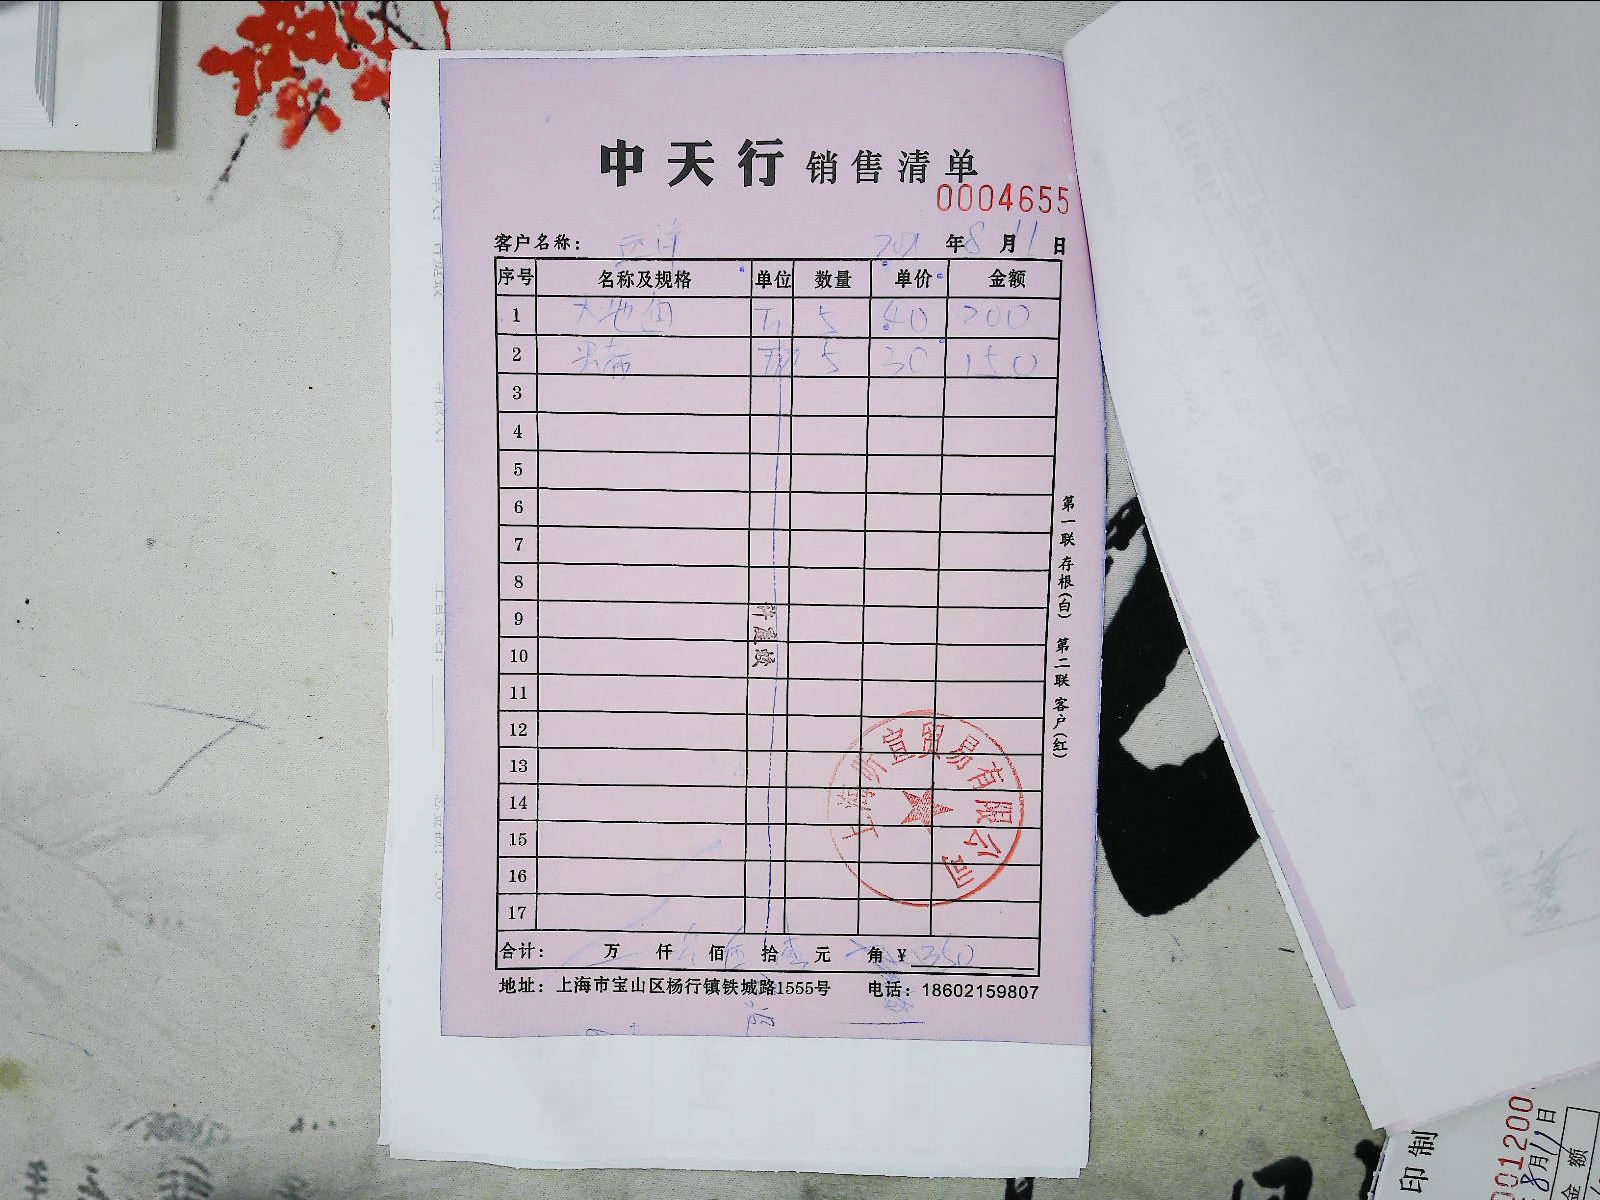 中天行 销售清单
0004655
客户名称： 年8月11日
序号 名称及规格 单位 数量 单价 金额
1 大地面 5 40 200
2 5 30 150
3
4
5
6
7
8
9
10
11
12
13
14
15
16
17
合计： 万 仟 佰 拾 元 角 ¥ 350
地址：上海市宝山区杨行镇铁城路1555号 电话：18602159807
第一联 存根(白) 第二联 客户(红)
贸易有限公司
001200
8月11日
印制
金额